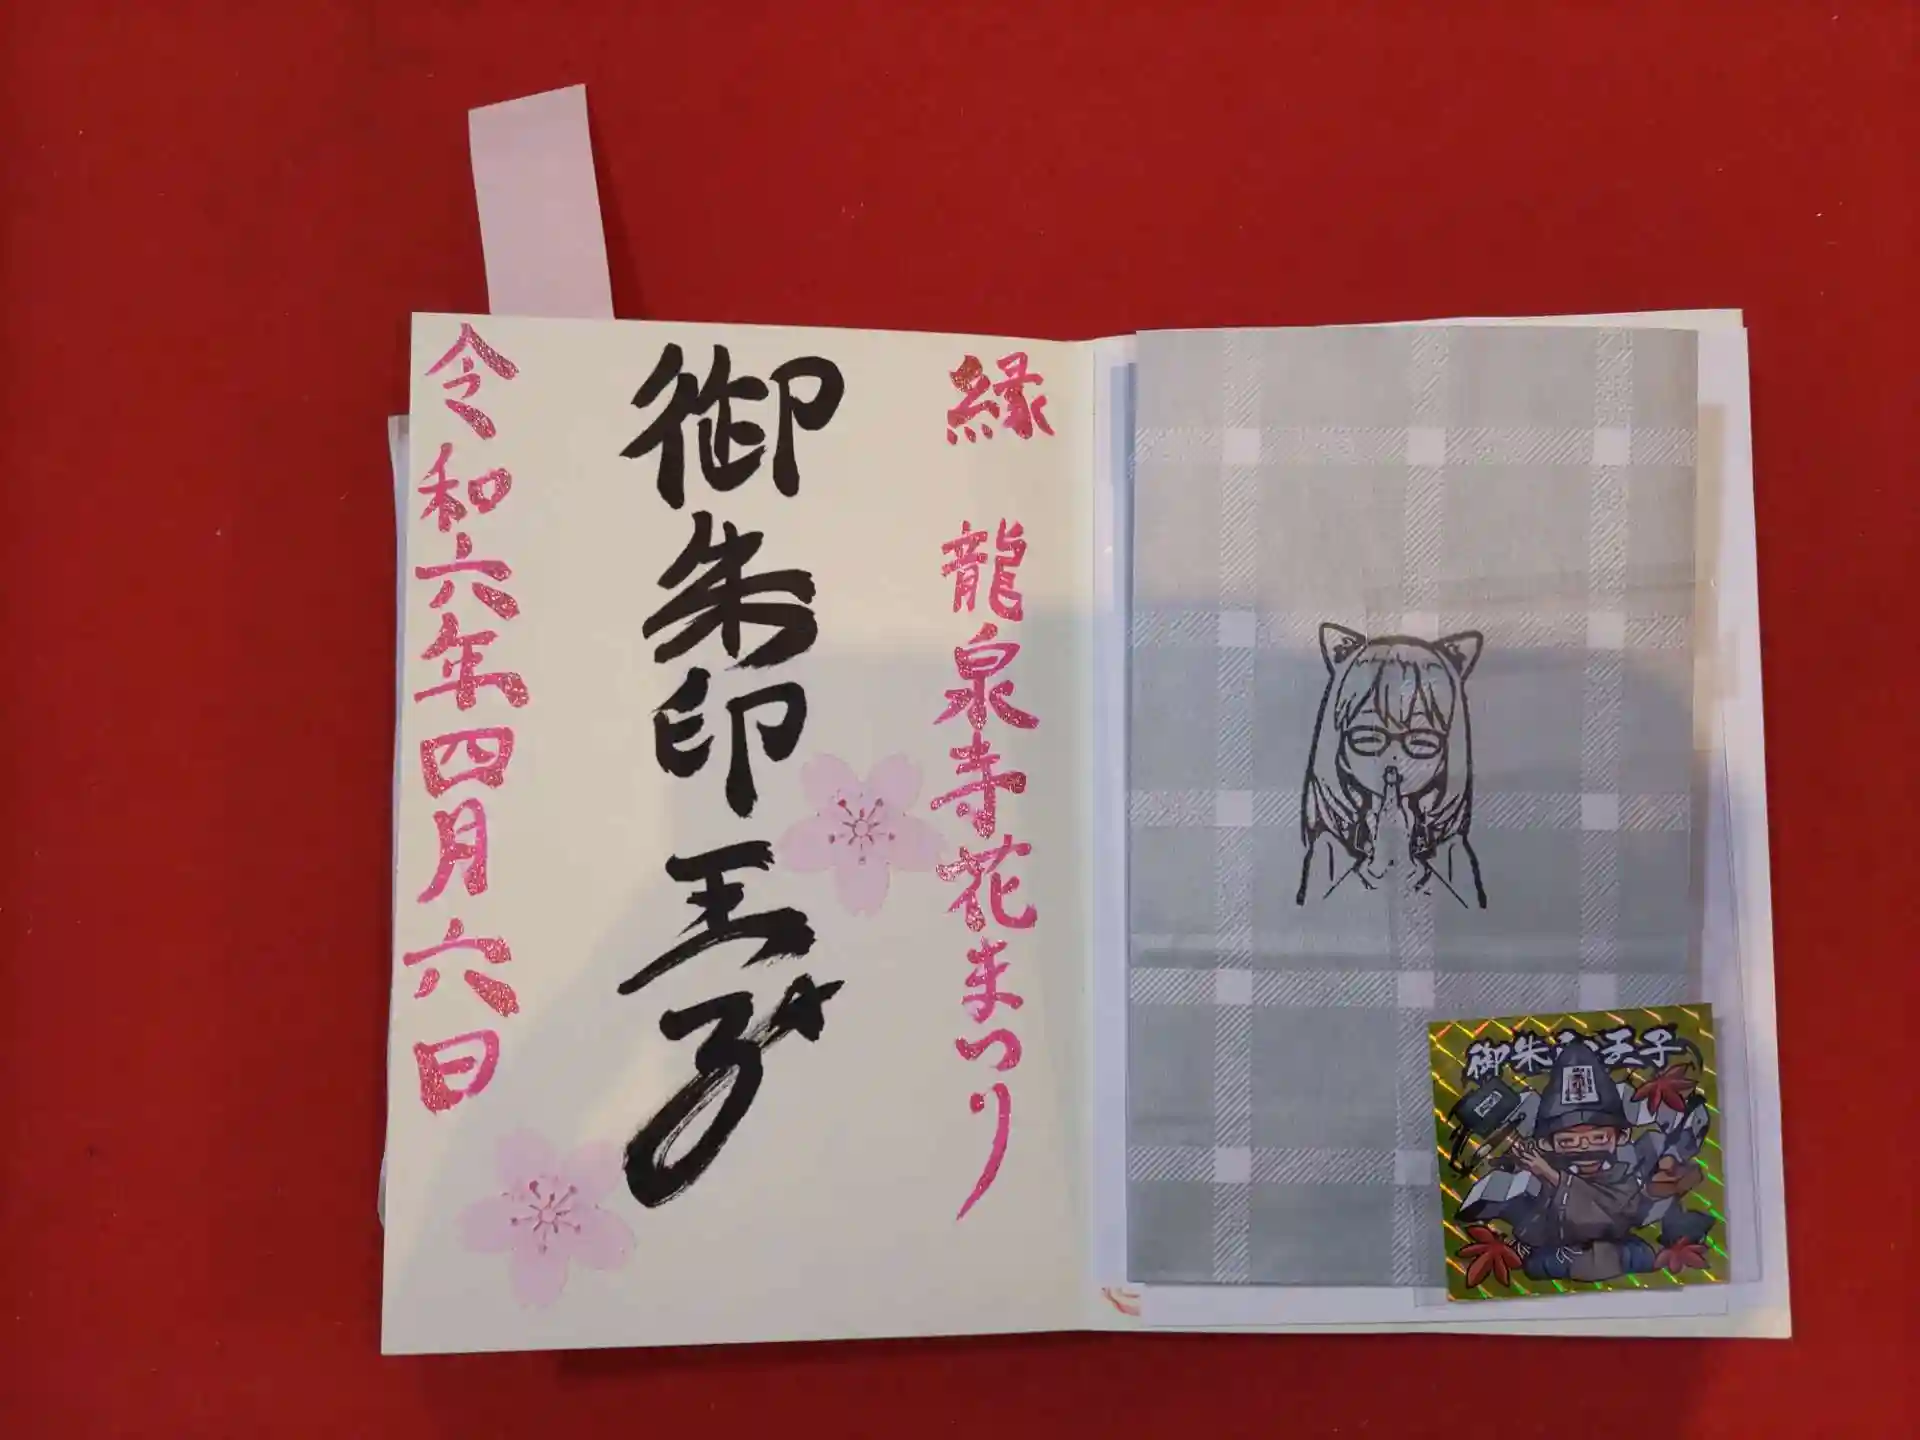 縁 龍泉寺花まつり
御朱印王子
令和六年四月六日
御朱印王子